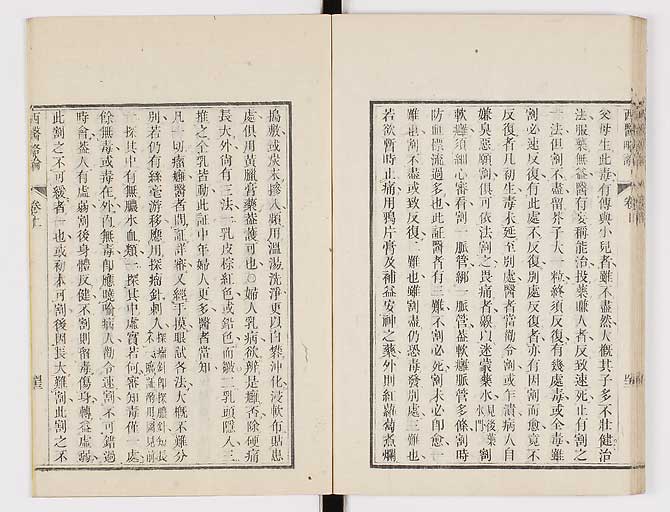 父母生此毒有傳與小兒者雖不盡然大槪其子多不壯健治
法服藥無益醫有妄稱能治投藥賺人者反致速死止有割之
一法但割不盡留芥子大一粒終須反復有幾處毒或全毒雖
割必速反復有此處不反復別處反復者亦有因割而愈竟不
反復者凡初生毒未延至別處醫者當勸令割或乍潰病人自
嫌臭惡願割俱可依法割之畏痛者緞以迷蒙藥水見後藥水門割
軟癰須細心審看割一脈管綁一脈管蓋軟癰脈管多條割時
防血標流過多也此証醫者有三難不割必死割未必卽愈一
難也割不盡或致反復二難也雖割盡仍恐毒發別處三難也
若欲暫時止痛用鴉片膏及補益安神之藥外則紅蘿蔔煮爛
搗敷或炭末摻入頻用溫湯洗淨更以白礬沖化浸軟布貼患
處俱用黃臘膏藥蓋護可也○婦人乳病欲辨是癰否除硬痛
長大外尚有三法一乳皮棕紅色或鉛色而皺二乳頭隱入三
推之全乳皆動此証中年婦人更多醫者當知
凡一切瘡癰醫者問証詳審又經手摸眼試各法大槪不難分
別若仍有絲毫游移應用探瘤針刺人探瘤針卽探膿針知長
一探其中有無膿水血類一探其中虛實若何審知毒僅一處
餘無毒或毒在外內無毒卽應曉喻病人勸令速割不可錯過
時會葢人有虛弱割後身體反健不割則留毒傷身轉益虛弱
此割之不可緩者一也或初未可割後因長大難割此割之不
西醫略論
卷中